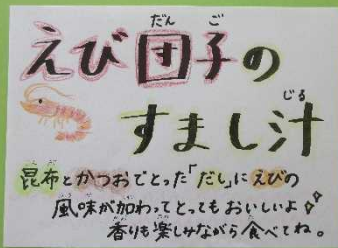 えび団子の
すまし汁
昆布とかつおでとった「だし」にえびの
風味が加わってとってもおいしいよ
香りも楽しみながら食べてね。